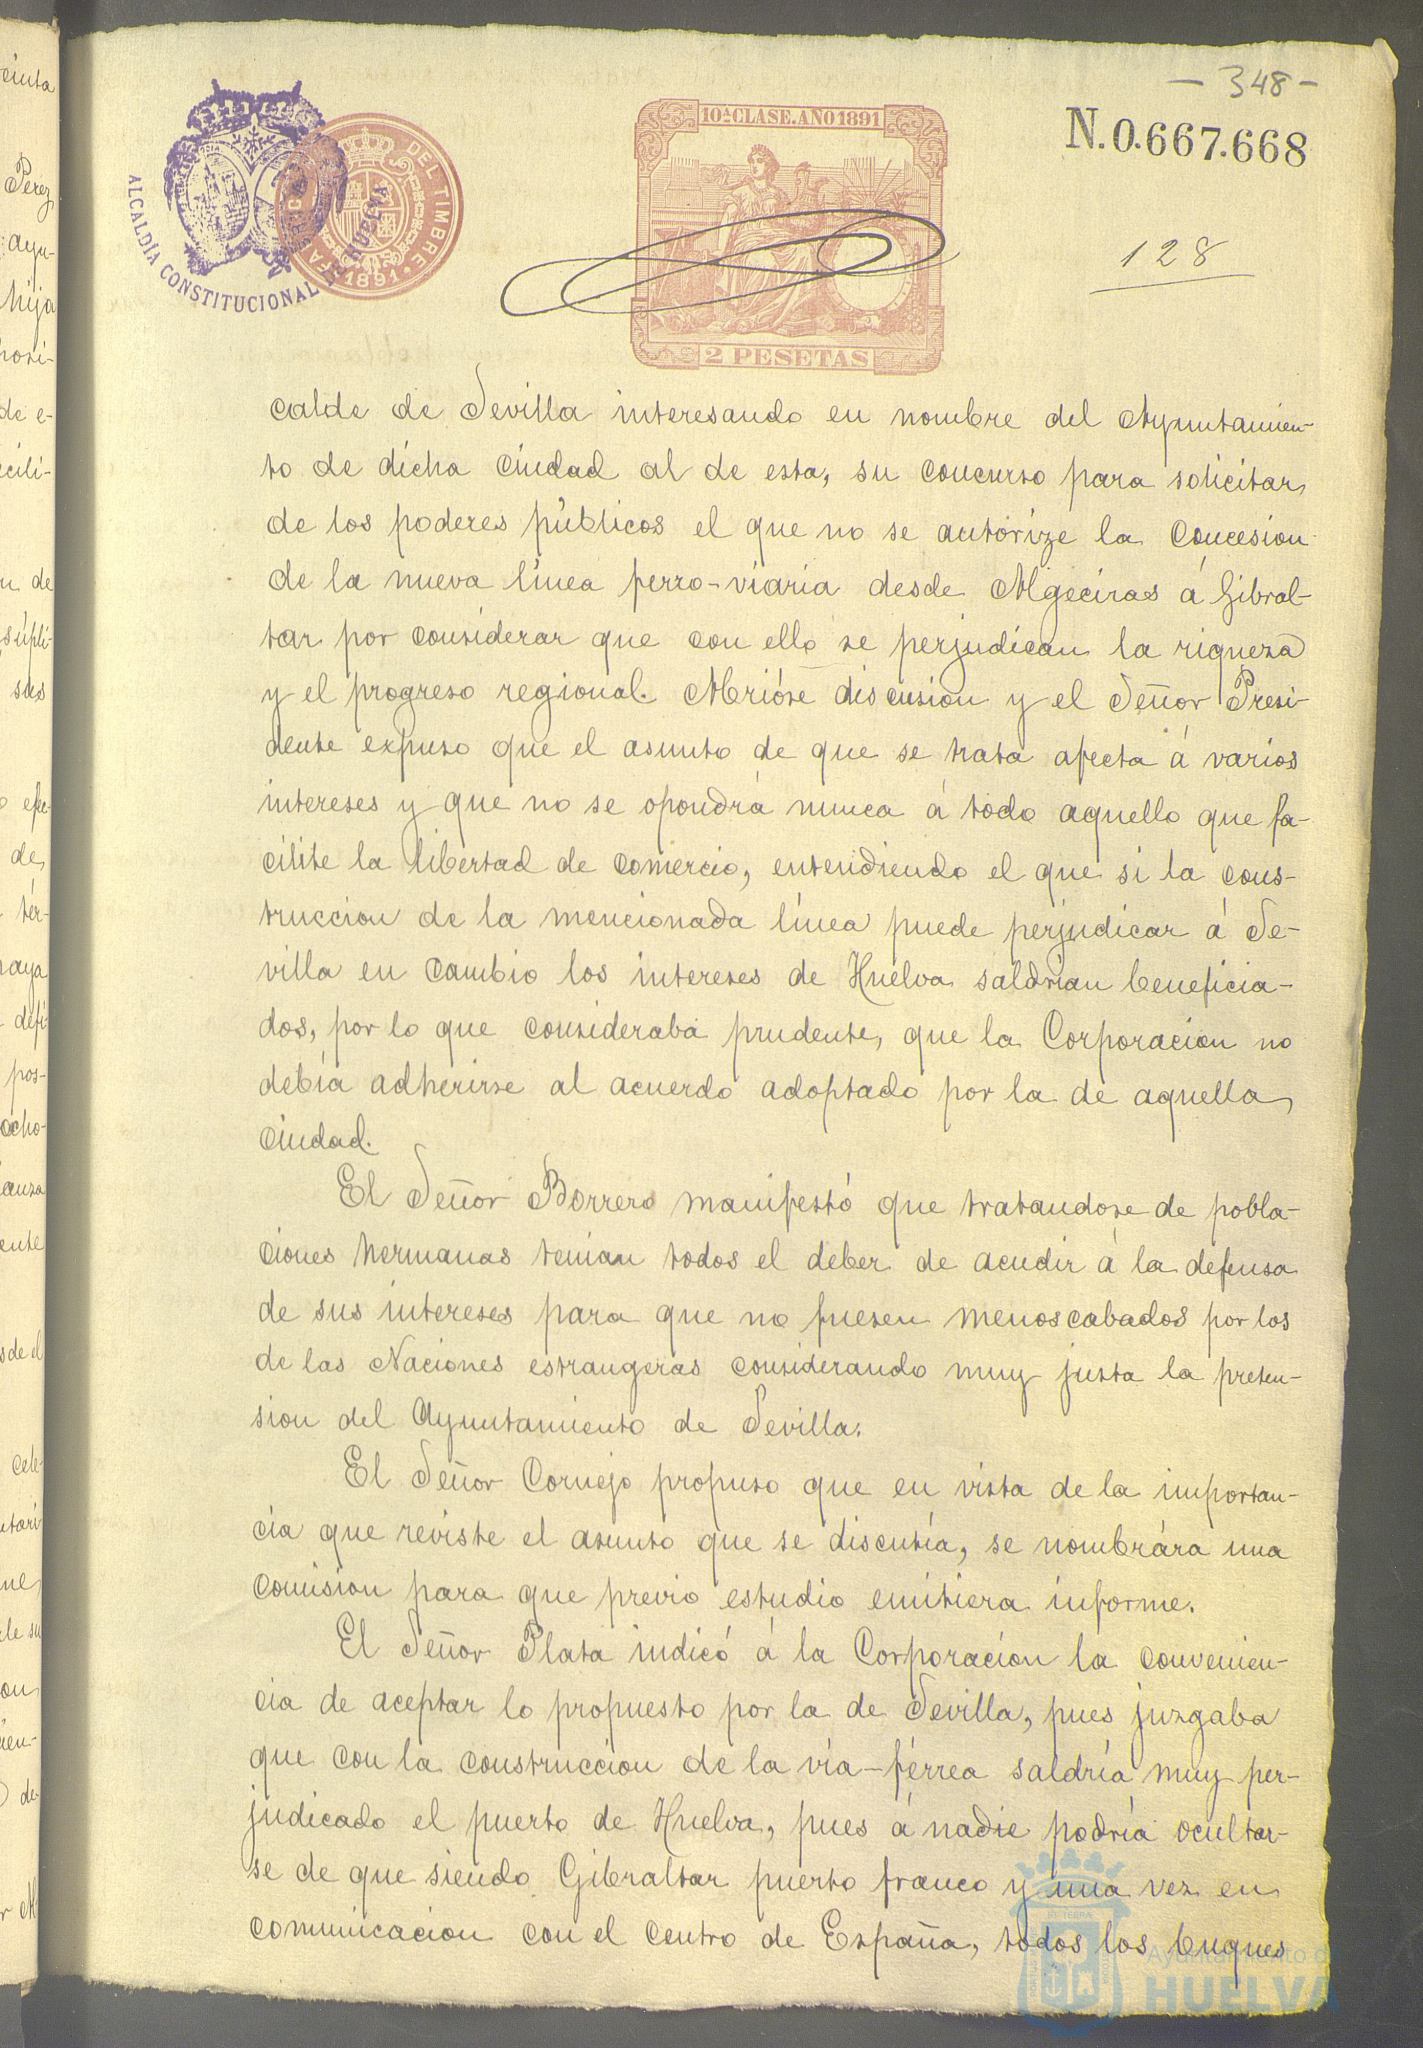 - 348 -
N. 0.667.668
128
10ª CLASE. AÑO 1891
2 PESETAS
ALCALDÍA CONSTITUCIONAL DE HUELVA
DEL TIMBRE
1891
calde de Sevilla interesando en nombre del Ayuntamien-
to de dicha Ciudad al de esta, su concurso para solicitar
de los poderes públicos el que no se autorize la Concesion
de la nueva línea ferro-viaria desde Algeciras á Gibral-
tar por considerar que con ello se perjudican la riqueza
y el progreso regional. Abrióse discusion y el Señor Presi-
dente expuso que el asunto de que se trata afecta á varios
intereses y que no se opondrá nunca á todo aquello que fa-
cilite la libertad de comercio, entendiendo el que si la cons-
truccion de la mencionada línea puede perjudicar á Se-
villa en cambio los intereses de Huelva saldrian beneficia-
dos, por lo que consideraba prudente, que la Corporacion no
debía adherirse al acuerdo adoptado por la de aquella
Ciudad.
El Señor Borrero manifestó que tratandose de pobla-
ciones hermanas tenian todos el deber de acudir á la defensa
de sus intereses para que no fuesen menoscabados por los
de las Naciones estrangeras considerando muy justa la preten-
sion del Ayuntamiento de Sevilla.
El Señor Cornejo propuso que en vista de la importan-
cia que reviste el asunto que se discutía, se nombrára una
Comision para que previo estudio emitiera informe.
El Señor Plata indicó á la Corporacion la convenien-
cia de aceptar lo propuesto por la de Sevilla, pues juzgaba
que con la construccion de la vía-férrea saldría muy per-
judicado el puerto de Huelva, pues á nadie podría ocultar-
se de que siendo Gibraltar puerto franco y una vez en
comunicacion con el centro de España, todos los buques
Ayuntamiento de
HUELVA